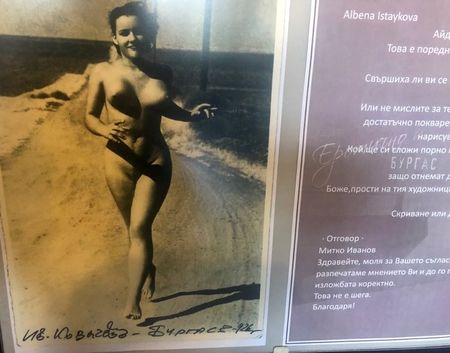 Albena Istaykova
Айд
Това е поредн
Свършиха ли ви се
Или не мислите за те
достатъчно покваре
нарисув
Кой ще си сложи порно
БУРГАС
защо отнемат д
Боже,прости на тия художниц
Скриване или д
- Отговор -
Митко Иванов
Здравейте, моля за Вашето съглас
разпечатаме мнението Ви и до го п
изложбата коректно.
Това не е шега.
Благодаря!
Ив.